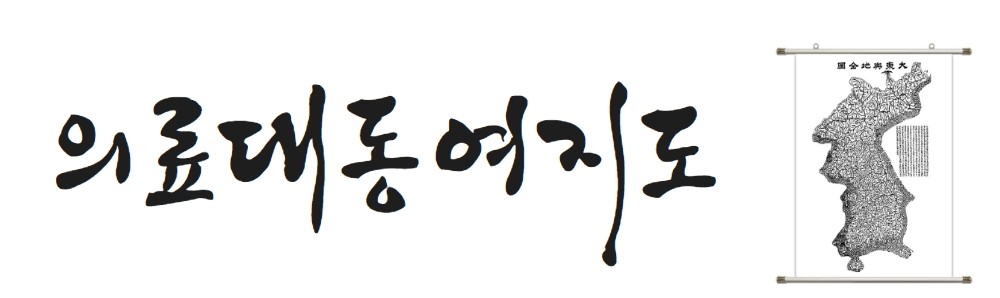 의료대동여지도
大東輿地全圖